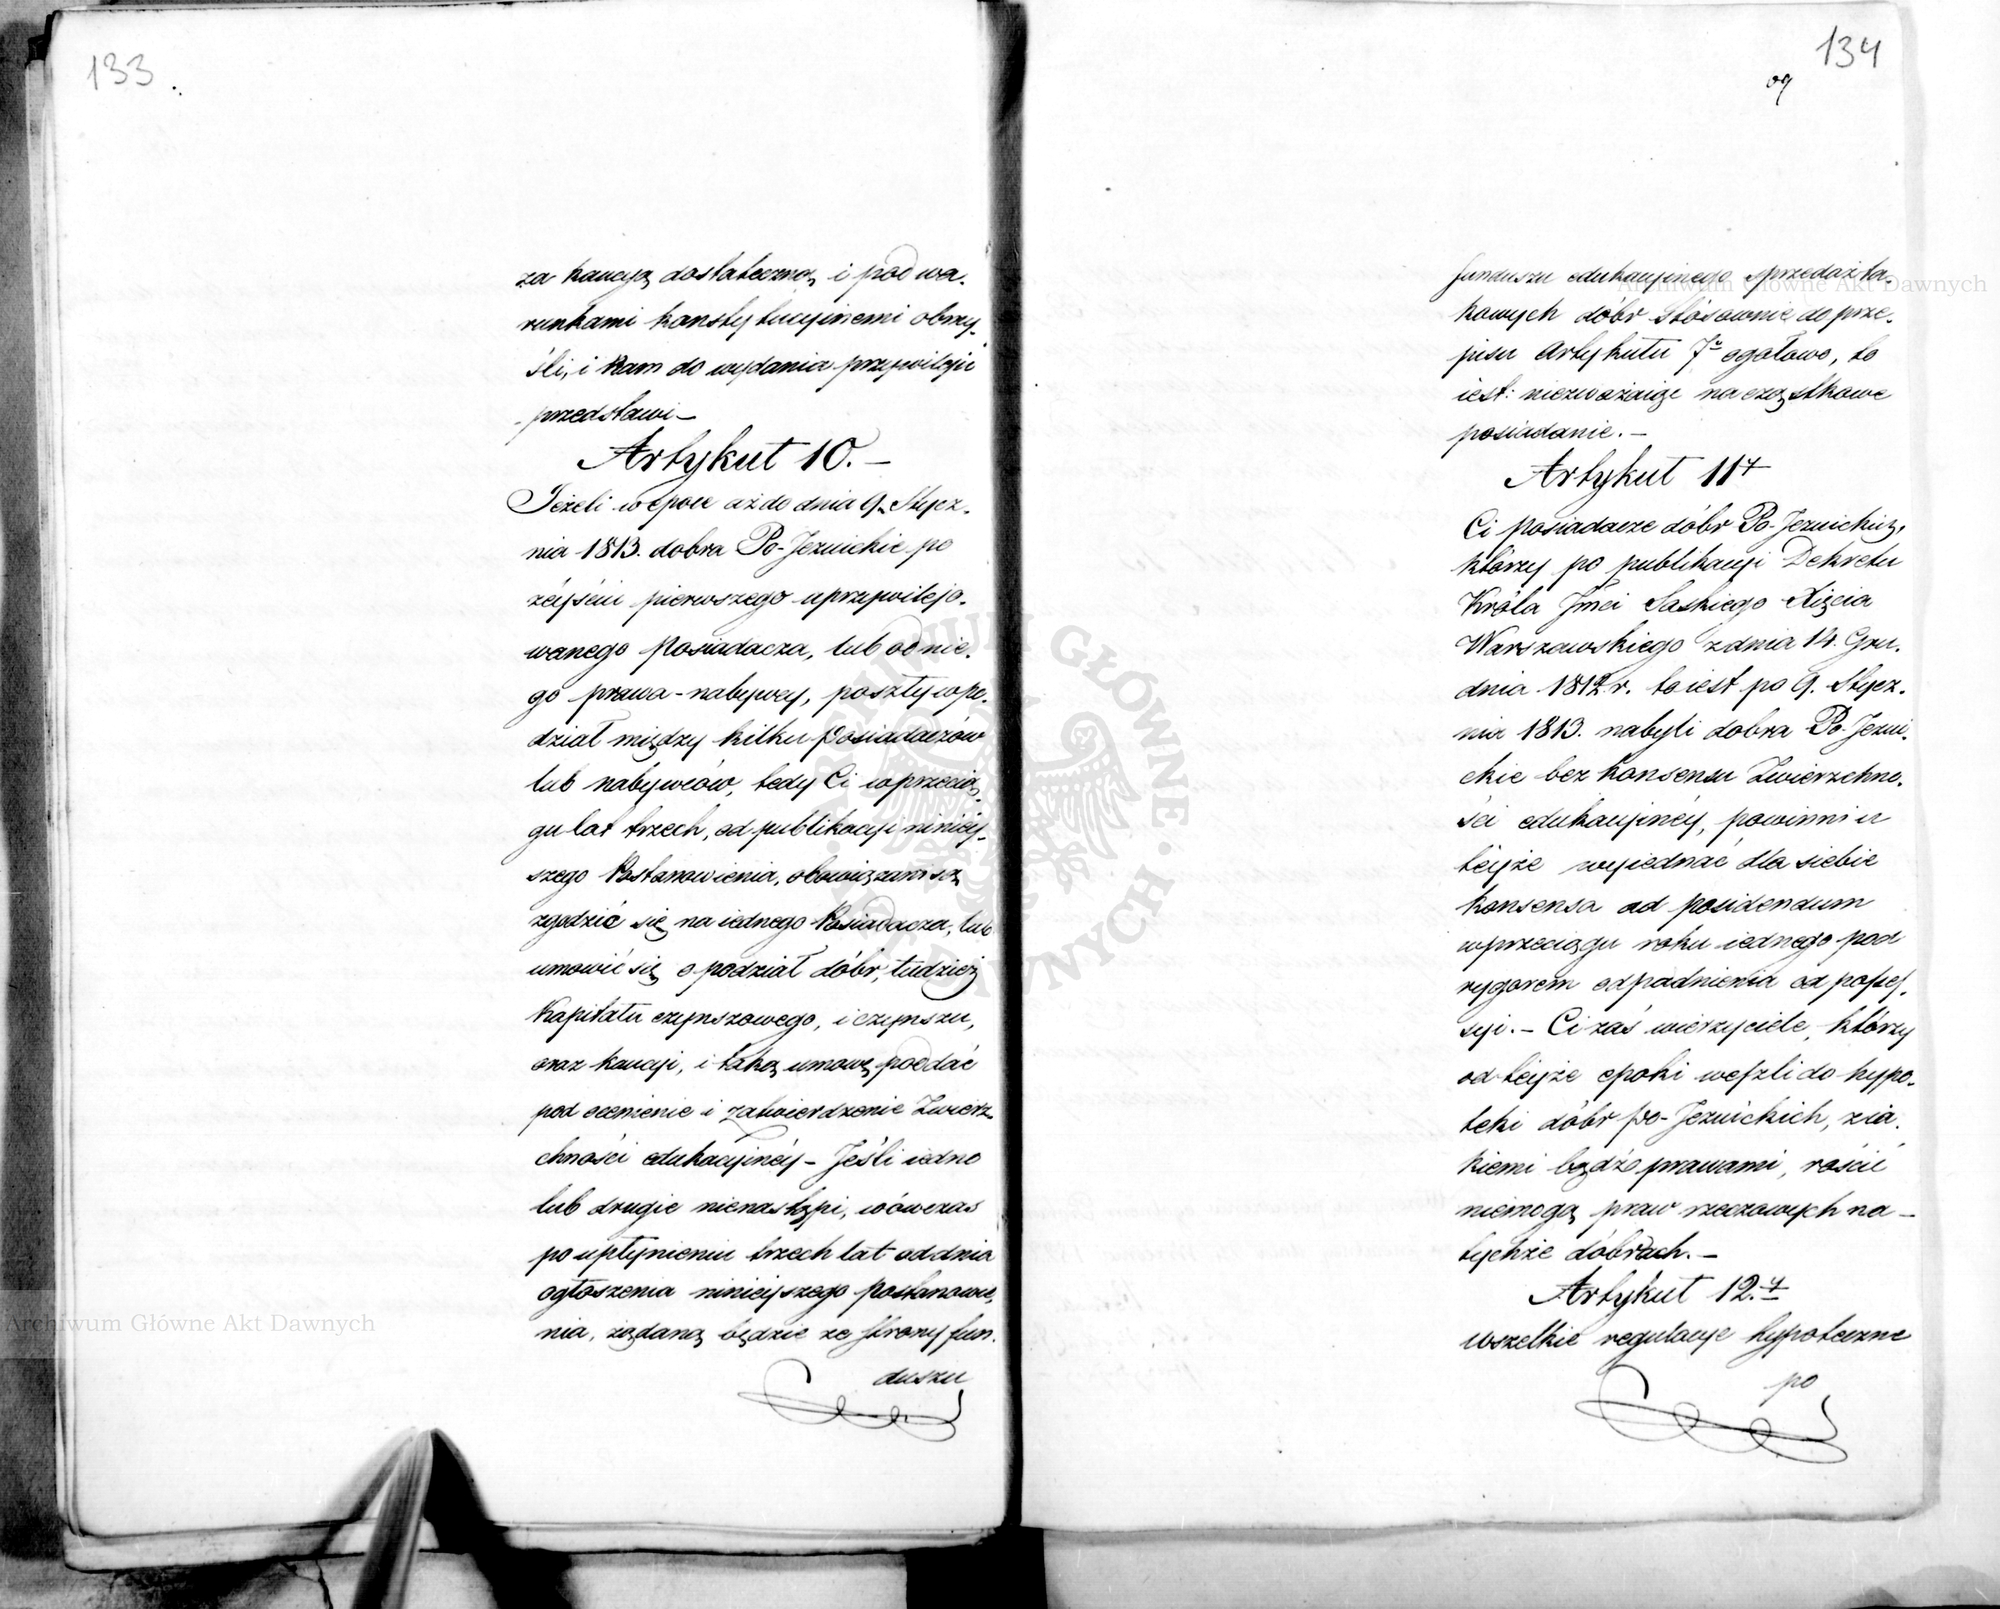 133.
za kaucyą dostateczną i pod wa-
runkami konstytucyinemi obmy-
śli, i kam do wydania przywileju
przedstawi —
Artykuł 10. —
Jeżeli w epoce aż do dnia 9. Stycz-
nia 1813. dobra Po-Jezuickie po
zéyściu pierwszego uprzywilejo-
wanego Posiadacza, lub od nie-
go prawa-nabywcy, poszły w po-
dział między kilku posiadaczów
lub nabywców, tedy Ci w przecią-
gu lat trzech, od publikacyi niniéy-
szego Postanowienia, obowiązani są
zgodzić się na iednego Posiadacza, lub
umowić się o podział dóbr, tudzież
Kapitału czynszowego, i czynszu,
oraz kaucyi, i taką umowę poddać
pod ocenienie i zatwierdzenie Zwierz-
chności edukacyinéy — Jeśli iedno
lub drugie nienastąpi, wówczas
po upłynieniu trzech lat od dnia
ogłoszenia niniéyszego postanowie-
nia, żądaną będzie ze strony fun-
duszu
134
funduszu edukacyinego sprzedaż ta-
kowych dóbr Stósownie do prze-
pisu Artykułu 7º ogołowo, to
iest: niezważaiąc na cząstkowe
posiadanie. —
Artykuł 11y
Ci posiadacze dóbr Po-Jezuickich,
którzy po publikacyi Dekretu
Króla Jmci Saskiego Xięcia
Warszawskiego z dnia 14. Gru-
dnia 1812 r. to iest po 9. Stycz-
nia 1813. nabyli dobra Po-Jezui-
ckie bez konsensu Zwierzchno-
ści edukacyinéy, powinni u
téyże wyiednać dla siebie
konsensa ad posidendum
w przeciągu roku iednego pod
rygorem odpadnienia od posses-
syi. — Ci zaś wierzyciele, którzy
od téyże epoki weszli do hypo-
teki dóbr po-Jezuickich, z ia-
kiemi bądź prawami, rościć
niemogą praw rzeczowych na —
tychże dóbrach. —
Artykuł 12.y
Wszelkie regulacye hypoteczne
po
Archiwum Główne Akt Dawnych
Archiwum Główne Akt Dawnych
ARCHIWUM GŁÓWNE AKT DAWNYCH